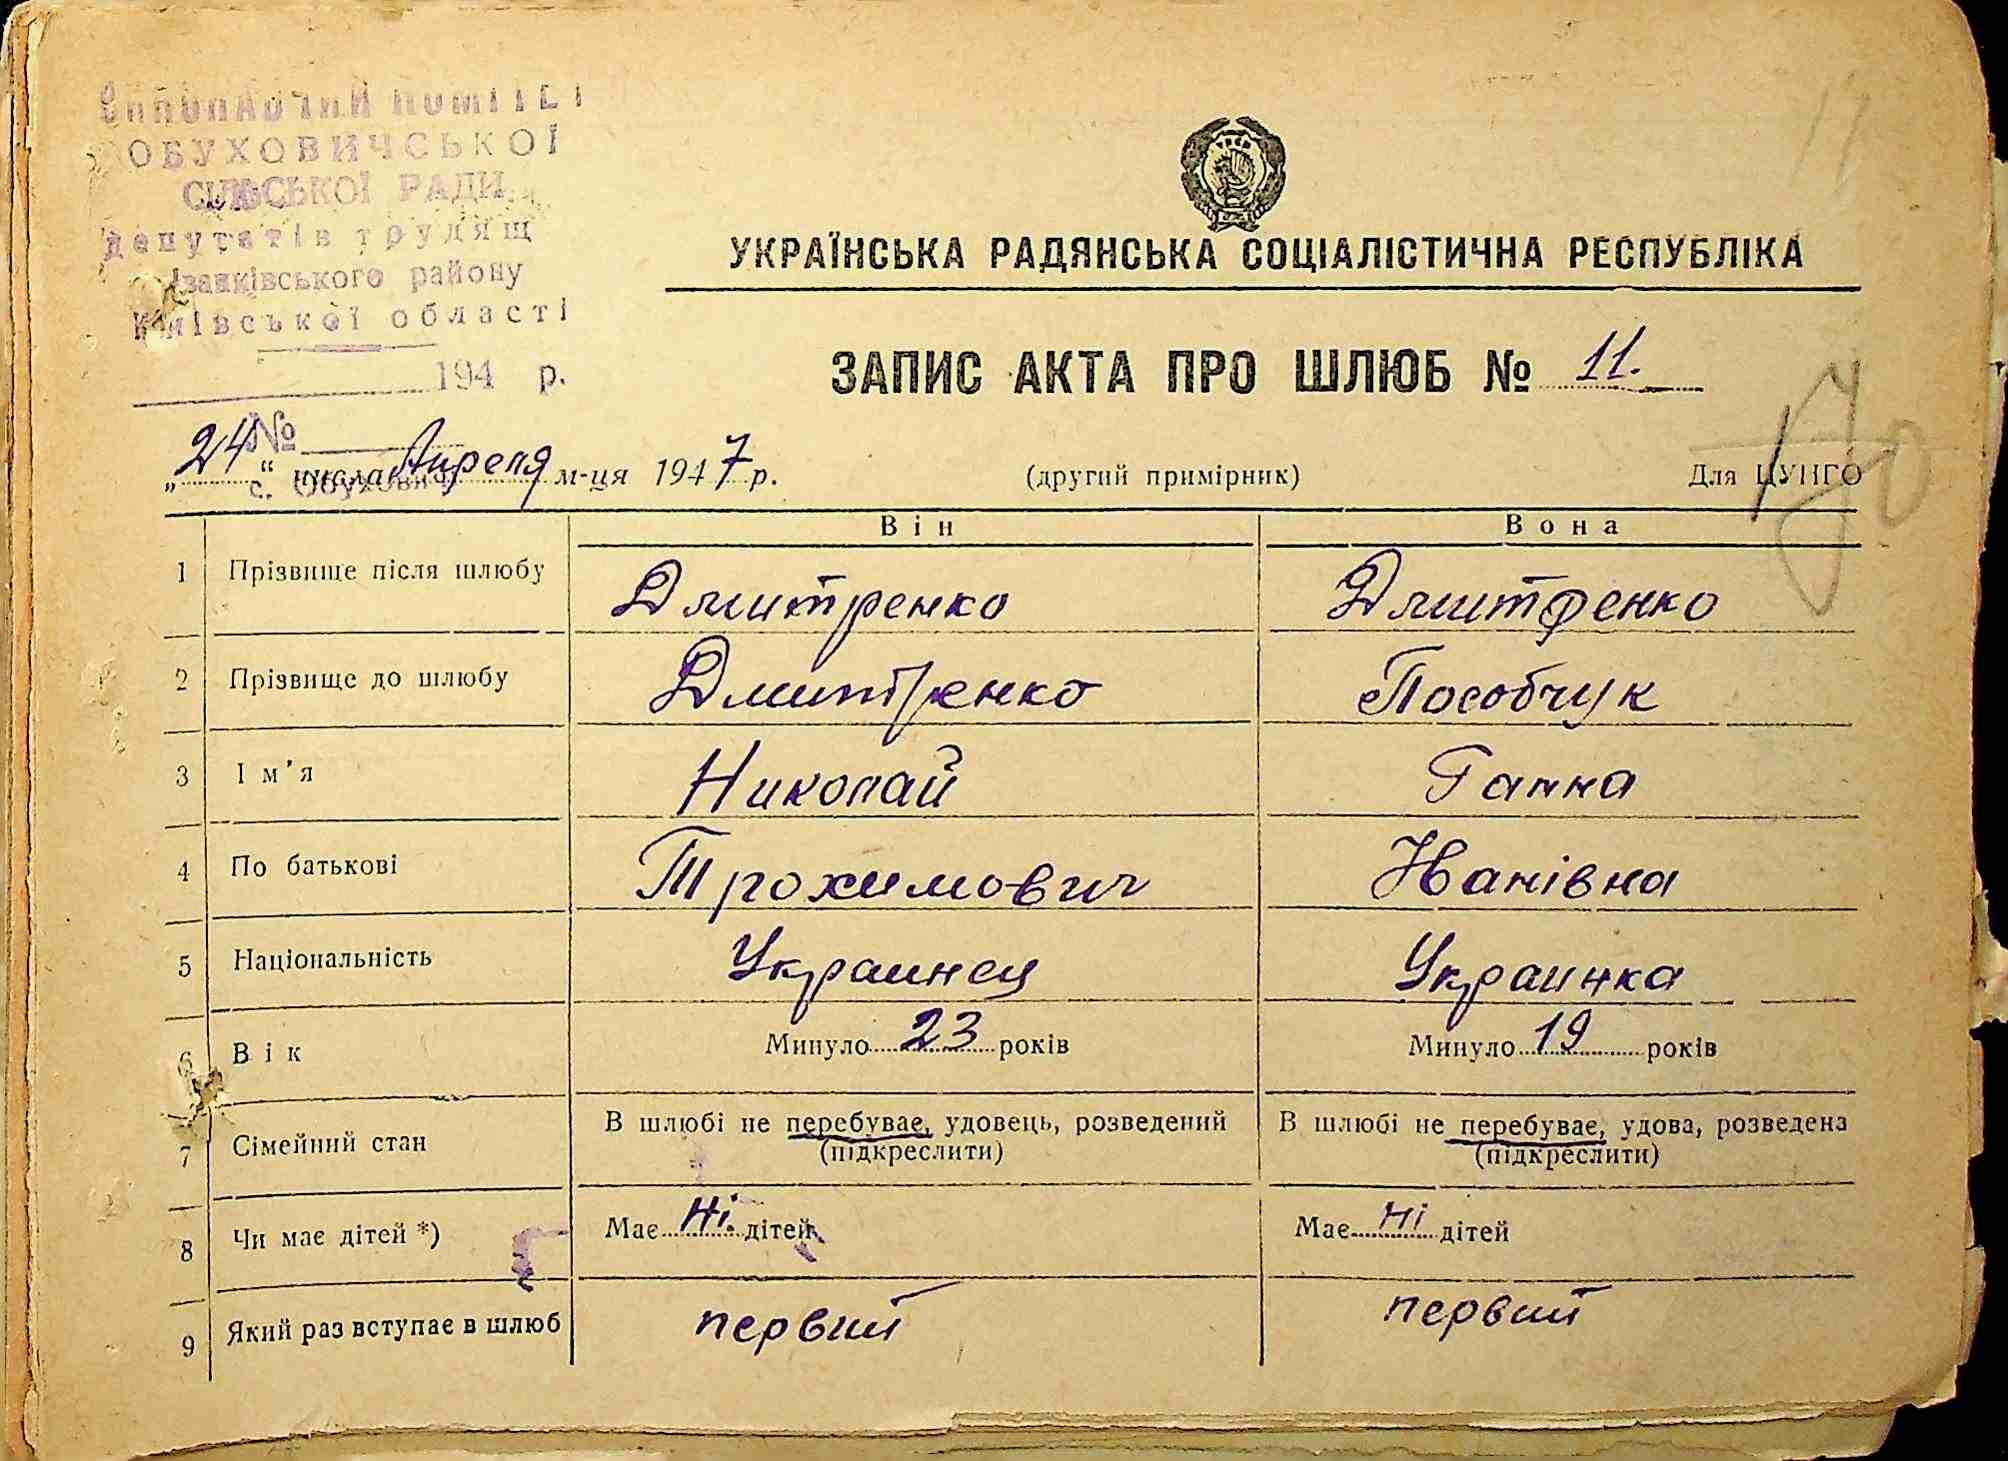 Виконавчий комітет
ОБУХОВИЧСЬКОЇ
СІЛЬСЬКОЇ РАДИ
депутатів трудящ
Іванківського району
Київської області
194 р.
№
с. Обуховичі
УРСР
УКРАЇНСЬКА РАДЯНСЬКА СОЦІАЛІСТИЧНА РЕСПУБЛІКА
ЗАПИС АКТА ПРО ШЛЮБ № 11.
„24“ числа Апреля м-ця 1947 р. (другий примірник) Для ЦУНГО
Він Вона
1 Прізвище після шлюбу Дмитренко Дмитренко
2 Прізвище до шлюбу Дмитренко Пособчук
3 Ім'я Николай Ганна
4 По батькові Трохимович Иванівна
5 Національність Украинец Украинка
6 Вік Минуло 23 років Минуло 19 років
7 Сімейний стан В шлюбі не перебуває, удовець, розведений В шлюбі не перебуває, удова, розведена
(підкреслити) (підкреслити)
8 Чи має дітей *) Має Ні. дітей Має Ні дітей
9 Який раз вступає в шлюб первий первий